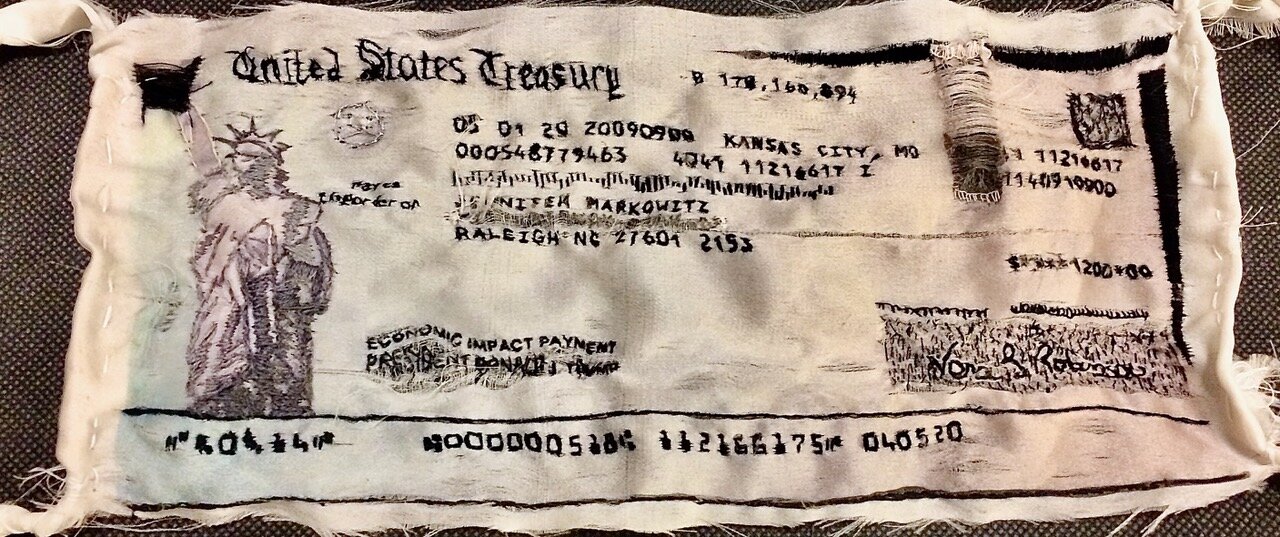 United States Treasury
B 178,160,894
05 01 20 20090900 KANSAS CITY, MO
000548779463 4041 11216617 I
11216617
1140910900
JENNIFER MARKOWITZ
RALEIGH NC 27601 2153
$****1200*00
ECONOMIC IMPACT PAYMENT
PRESIDENT DONALD J. TRUMP
112166175 040520